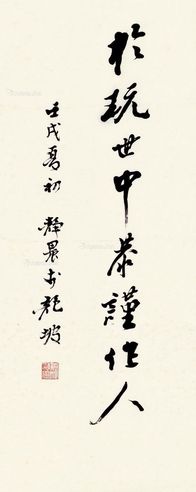 於玩世中恭謹作人
壬戌夏初 靜農於龍坡